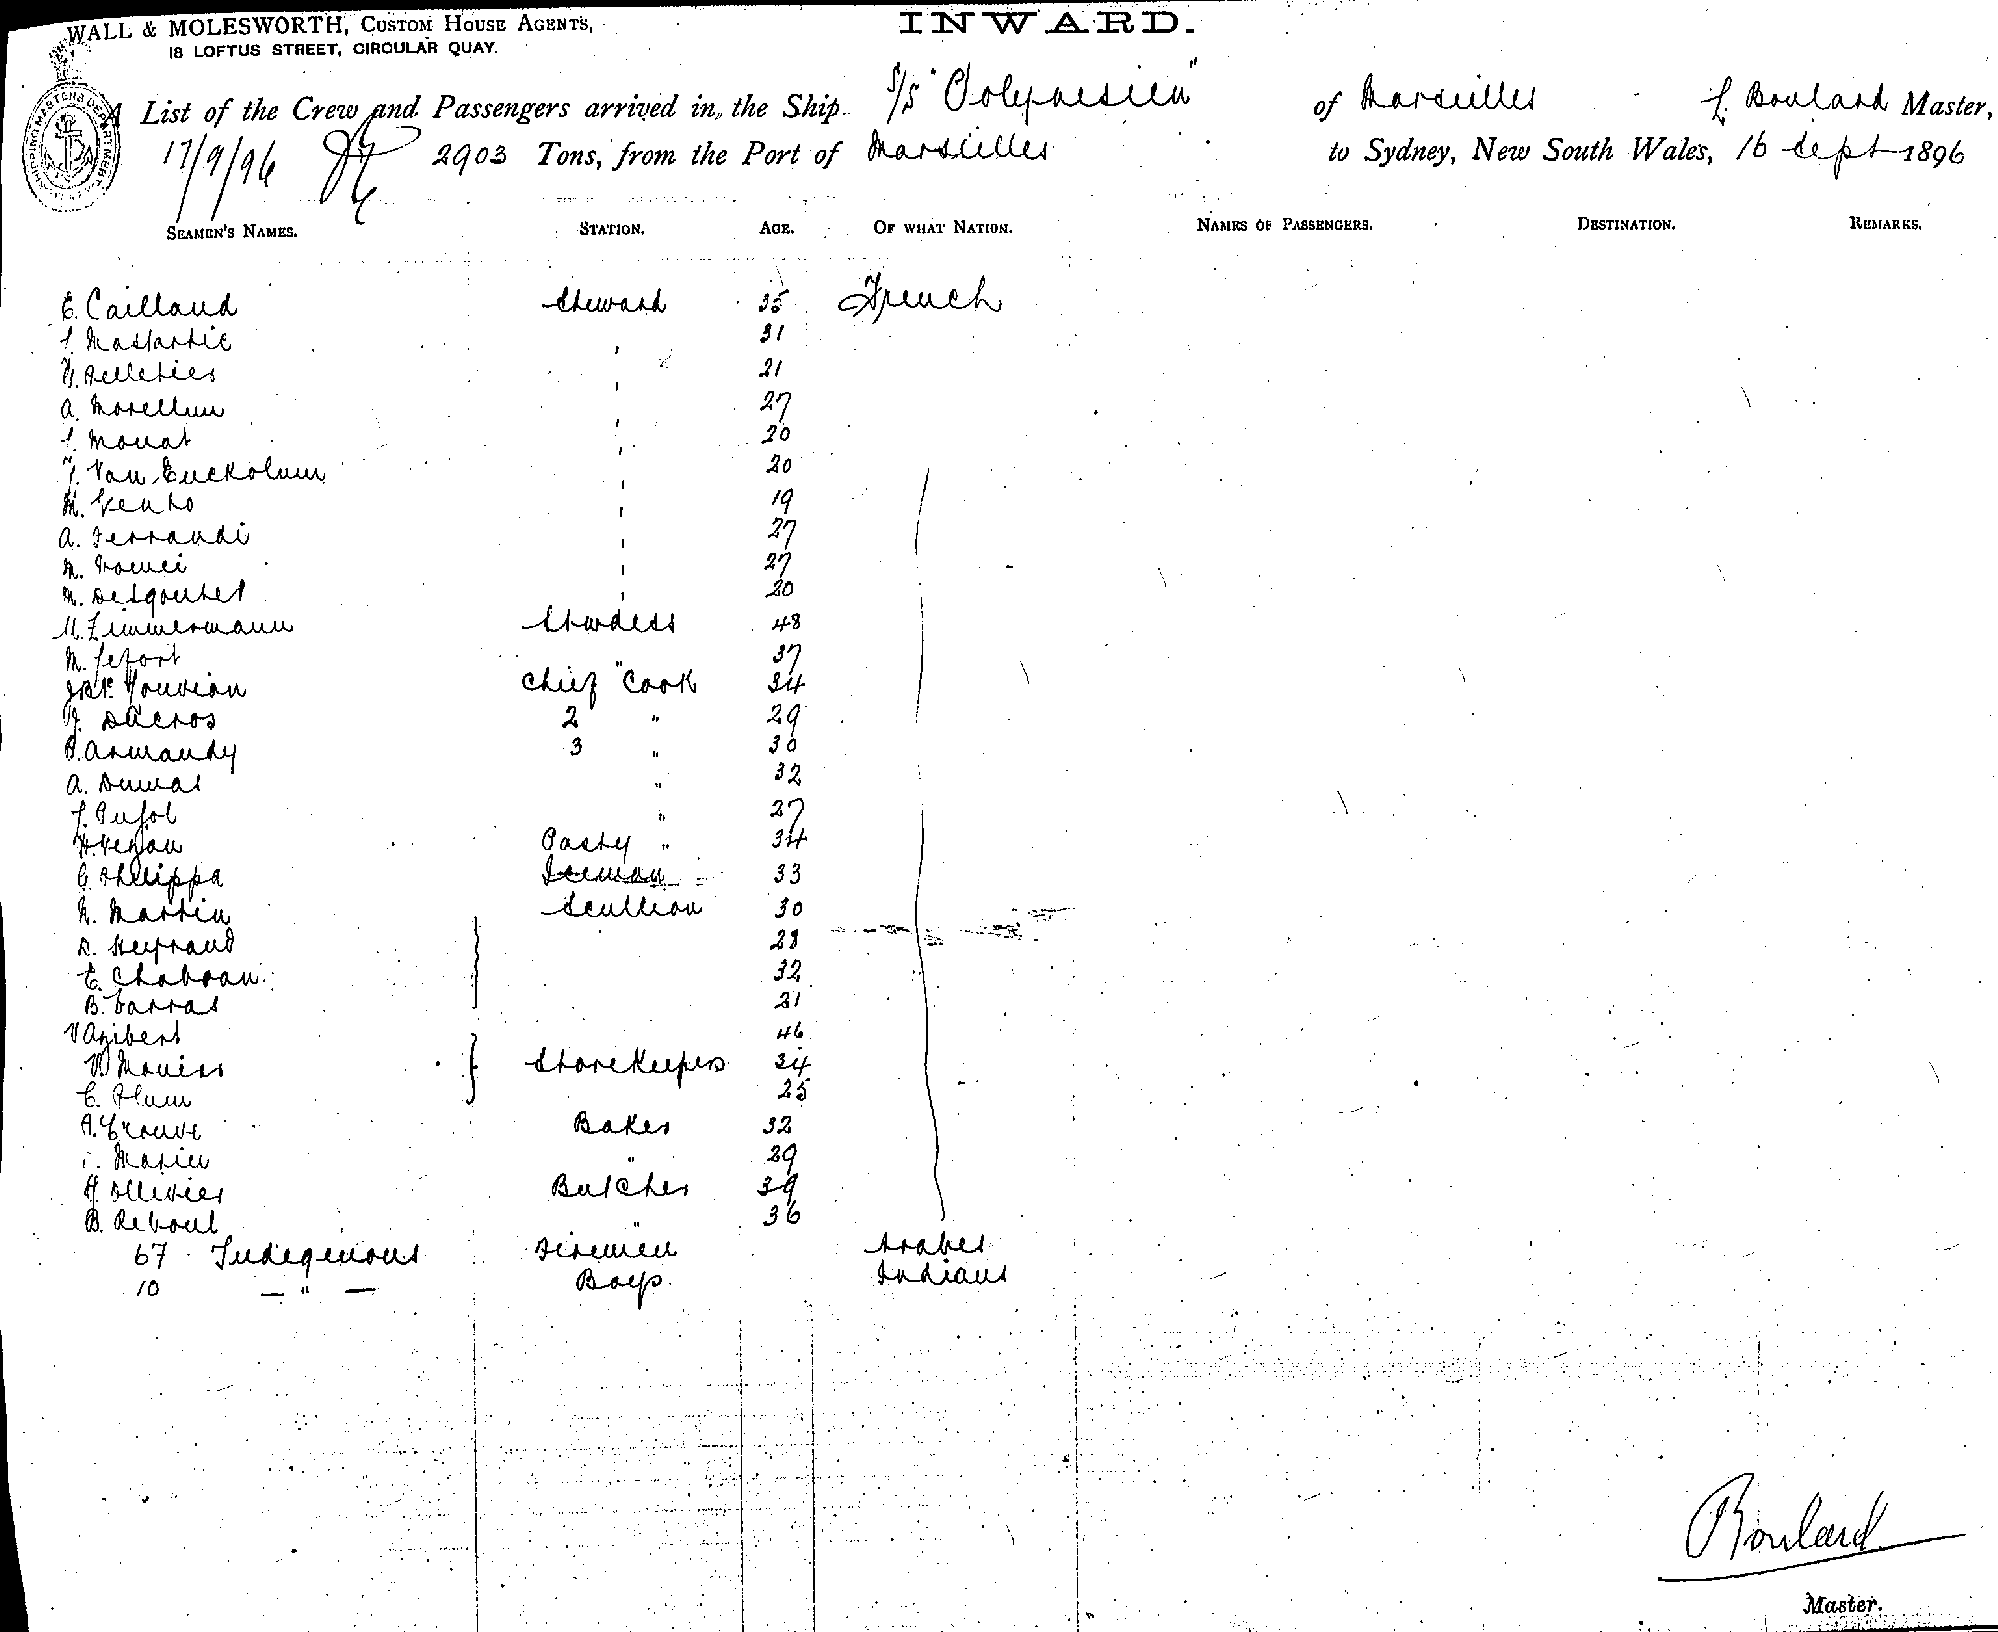 WALL & MOLESWORTH, CUSTOM HOUSE AGENTS,
18 LOFTUS STREET, CIRCULAR QUAY.
INWARD.
A List of the Crew and Passengers arrived in the Ship S/S "Polynesien" of Marseilles Boulard Master,
17/9/96 2903 Tons, from the Port of Marseilles to Sydney, New South Wales, 16 Sept 1896
SEAMEN'S NAMES. STATION. AGE. OF WHAT NATION. NAMES OF PASSENGERS. DESTINATION. REMARKS.
E. Caillaud Steward 35 French
31
Pelletier 21
A. Morellun 27
Monat 20
Van 20
M. Vento 19
A. Ferrandi 27
M. 27
M. Desgoutet 20
M. Zimmermann Stewdess 48
M. Lefort " 37
Chief Cook 34
Ducros 2 " 29
P. Armandy 3 " 30
A. Dumas " 32
Pujol " 27
Pasty " 34
Philippa Iceman 33
Martin Scullion 30
28
E. Chabran 32
B. Farras 21
V Agibert 46
Storekeepers 34
E. 25
A. Crouve Baker 32
Marin " 29
H. Ollivier Butcher 39
B. Reboul " 36
67 Indegenous Firemen Arabes
10 — " — Boys Indians
Boulard
Master.